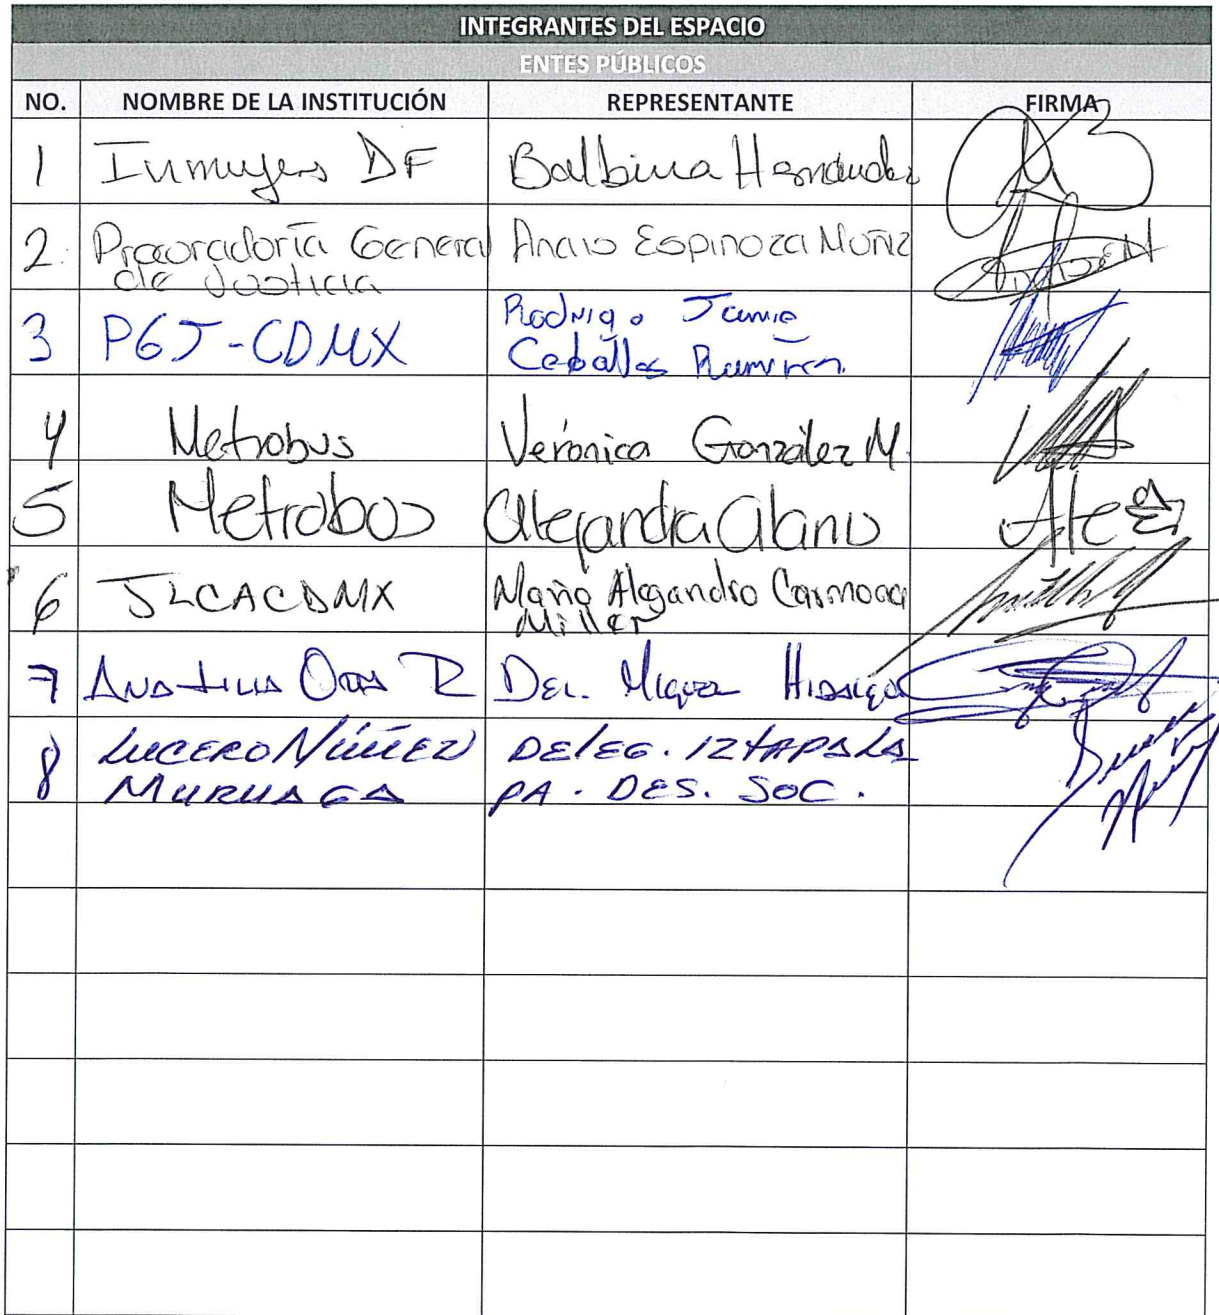 INTEGRANTES DEL ESPACIO
ENTES PÚBLICOS
NO. NOMBRE DE LA INSTITUCIÓN REPRESENTANTE FIRMA
1 Inmujeres DF Balbina Hernández
2. Procuradoría General Anais Espinoza Muñiz
de Justicia
3 PGJ-CDMX Rodrigo Jaime
Ceballos Ramírez
4 Metrobus Verónica González M.
5 Metrobus Alejandra Alanis
6 JLCACDMX Mario Alejandro Carmona
Miller
7 Del. Miguel Hidalgo
8 LUCERO NÚÑEZ DELEG. IZTAPALA
MURUAGA PA. DES. SOC.